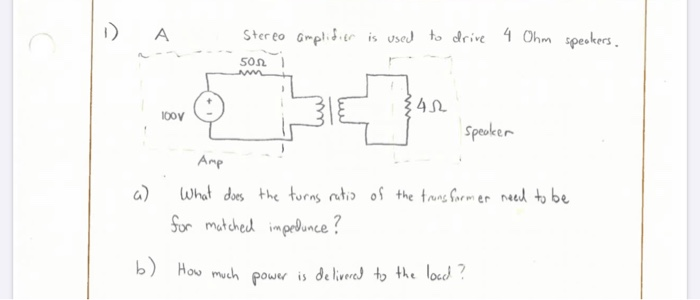 1) A Stereo amplifier is used to drive 4 Ohm speakers.
50Ω
100V
+
-
4Ω
Speaker
Amp
a) What does the turns ratio of the transformer need to be
for matched impedance?
b) How much power is delivered to the load?